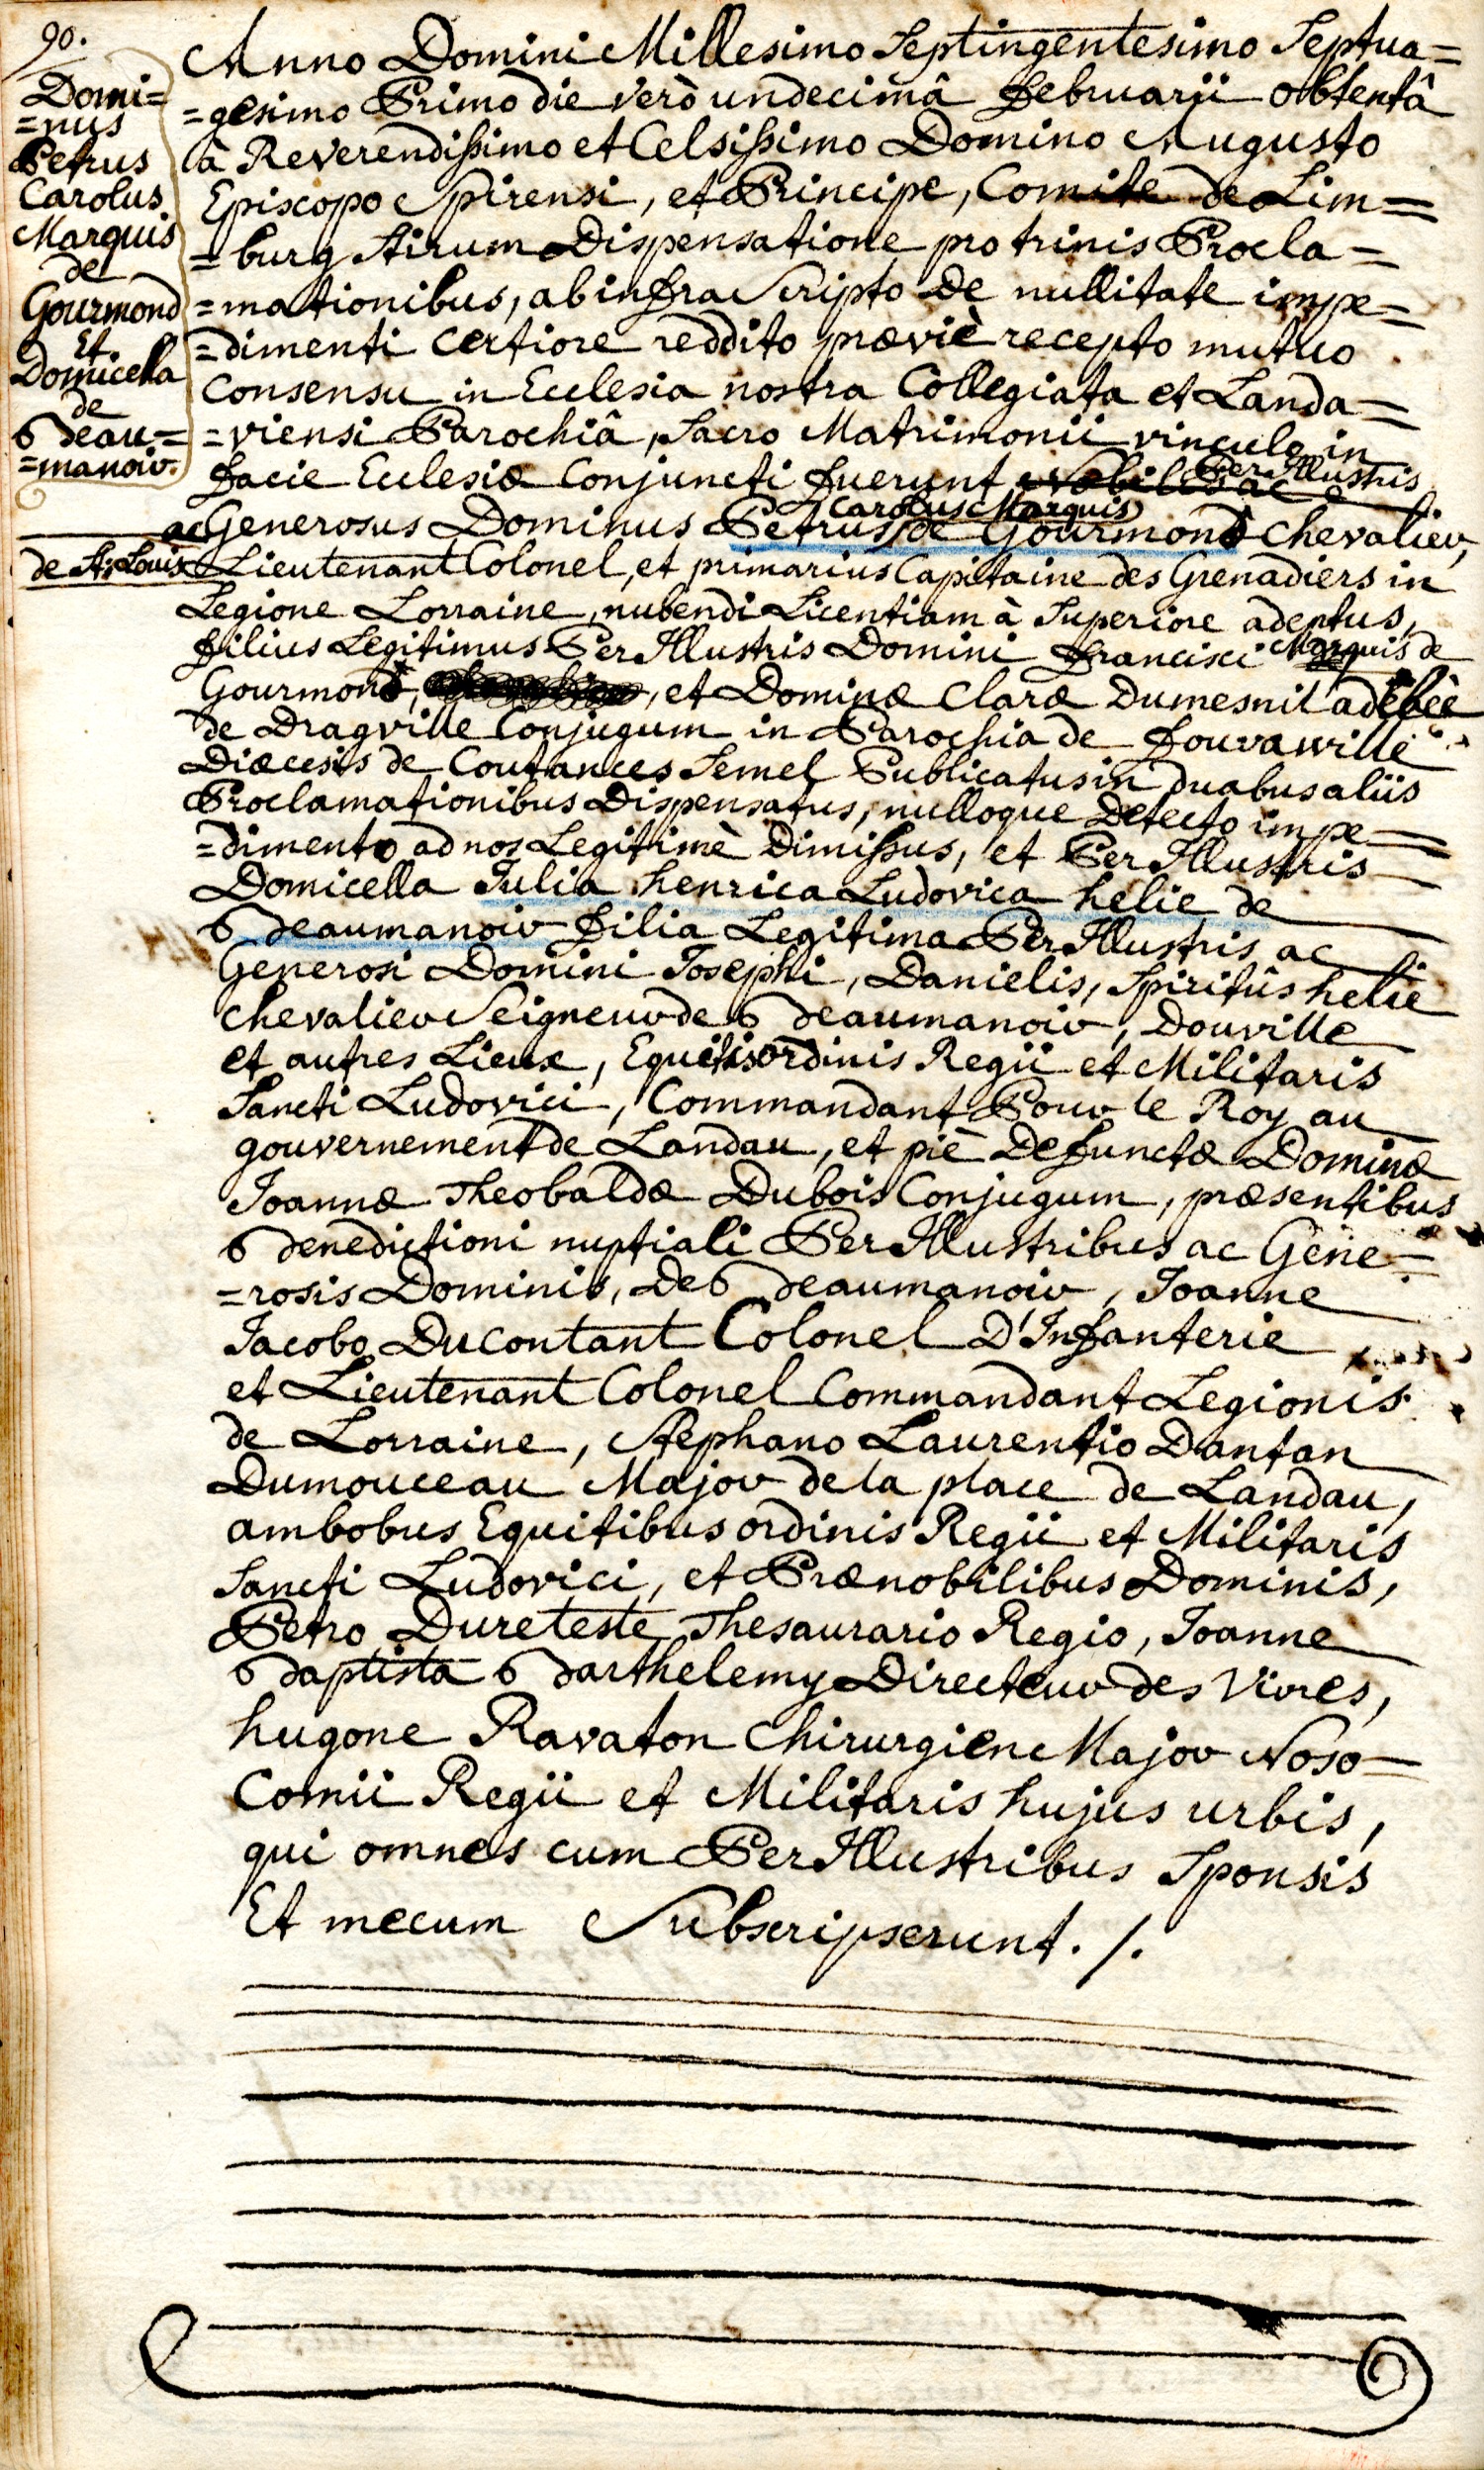 90.
Domi=
=nus
Petrus
Carolus
Marquis
de
Gourmond
Et
Domicella
de
Beau=
=manoir.
Anno Domini Millesimo Septingentesimo Septua=
=gesimo Primo die verò undecimâ februarii obtentâ
à Reverendissimo et Celsissimo Domino Augusto
Episcopo Spirensi, et Principe, Comite de Lim=
=burg Stirum Dispensatione pro trinis Procla=
=mationibus, ab infra Scripto de nullitate impe=
=dimenti certiore reddito præviè recepto mutuo
consensu in Ecclesia nostra Collegiata et Landa=
=viensi Parochiâ, Sacro Matrimonii vinculo in
facie Ecclesiæ Conjuncti fuerunt Nobilis ac Per Illustris
ac Generosus Dominus Petrus Carolus Marquis de Gourmond chevalier,
de St. Louis Lieutenant Colonel, et primarius Capitaine des Grenadiers in
Legione Lorraine, nubendi Licentiam à Superiore adeptus,
filius Legitimus Per Illustris Domini francisci Marquis de
Gourmond, et Dominæ Claræ Dumesnil
de Dragville Conjugum in Parochia de
Diæcesis de Coutances Semel Publicatus in duabus aliis
Proclamationibus Dispensatus, nulloque Detecto impe=
=dimento ad nos Legitimè Dimissus, et Per Illustris
Domicella Julia henrica Ludovica helie de
Beaumanoir filia Legitima Per Illustris ac
Generosi Domini Josephi, Danielis, Spiritûs helie
chevalier Seigneur de Beaumanoir, Douville
et autres Lieux, Equitis ordinis Regii et Militaris
Sancti Ludovici, Commandant Pour le Roy au
gouvernement de Landau, et piè Defunctæ Dominæ
Joannæ Theobaldæ Dubois Conjugum, præsentibus
Benedictioni nuptiali Per Illustribus ac Gene=
=rosis Dominis, de Beaumanoir, Joanne
Jacobo Ducontant Colonel D'Infanterie
et Lieutenant Colonel Commandant Legionis
de Lorraine, Stephano Laurentio Dantan
Dumouceau Major de la place de Landau,
ambobus Equitibus ordinis Regii et Militaris
Sancti Ludovici, et Prænobilibus Dominis,
Petro Dureteste Thesaurario Regio, Joanne
Baptista Barthelemy Directeur des Vivres,
hugone Ravaton Chirurgien Major Noso=
Comii Regii et Militaris hujus urbis,
qui omnes cum Per Illustribus Sponsis
Et mecum Subscripserunt. /.